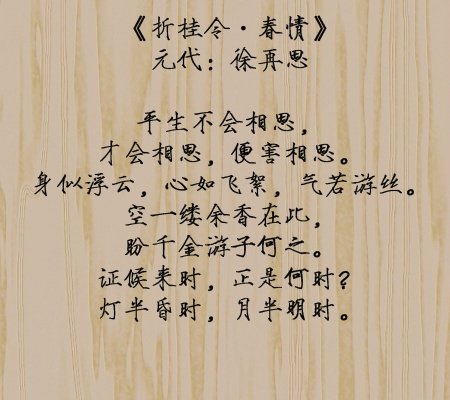 《折桂令·春情》
元代：徐再思
平生不会相思，
才会相思，便害相思。
身似浮云，心如飞絮，气若游丝。
空一缕余香在此，
盼千金游子何之。
证候来时，正是何时？
灯半昏时，月半明时。